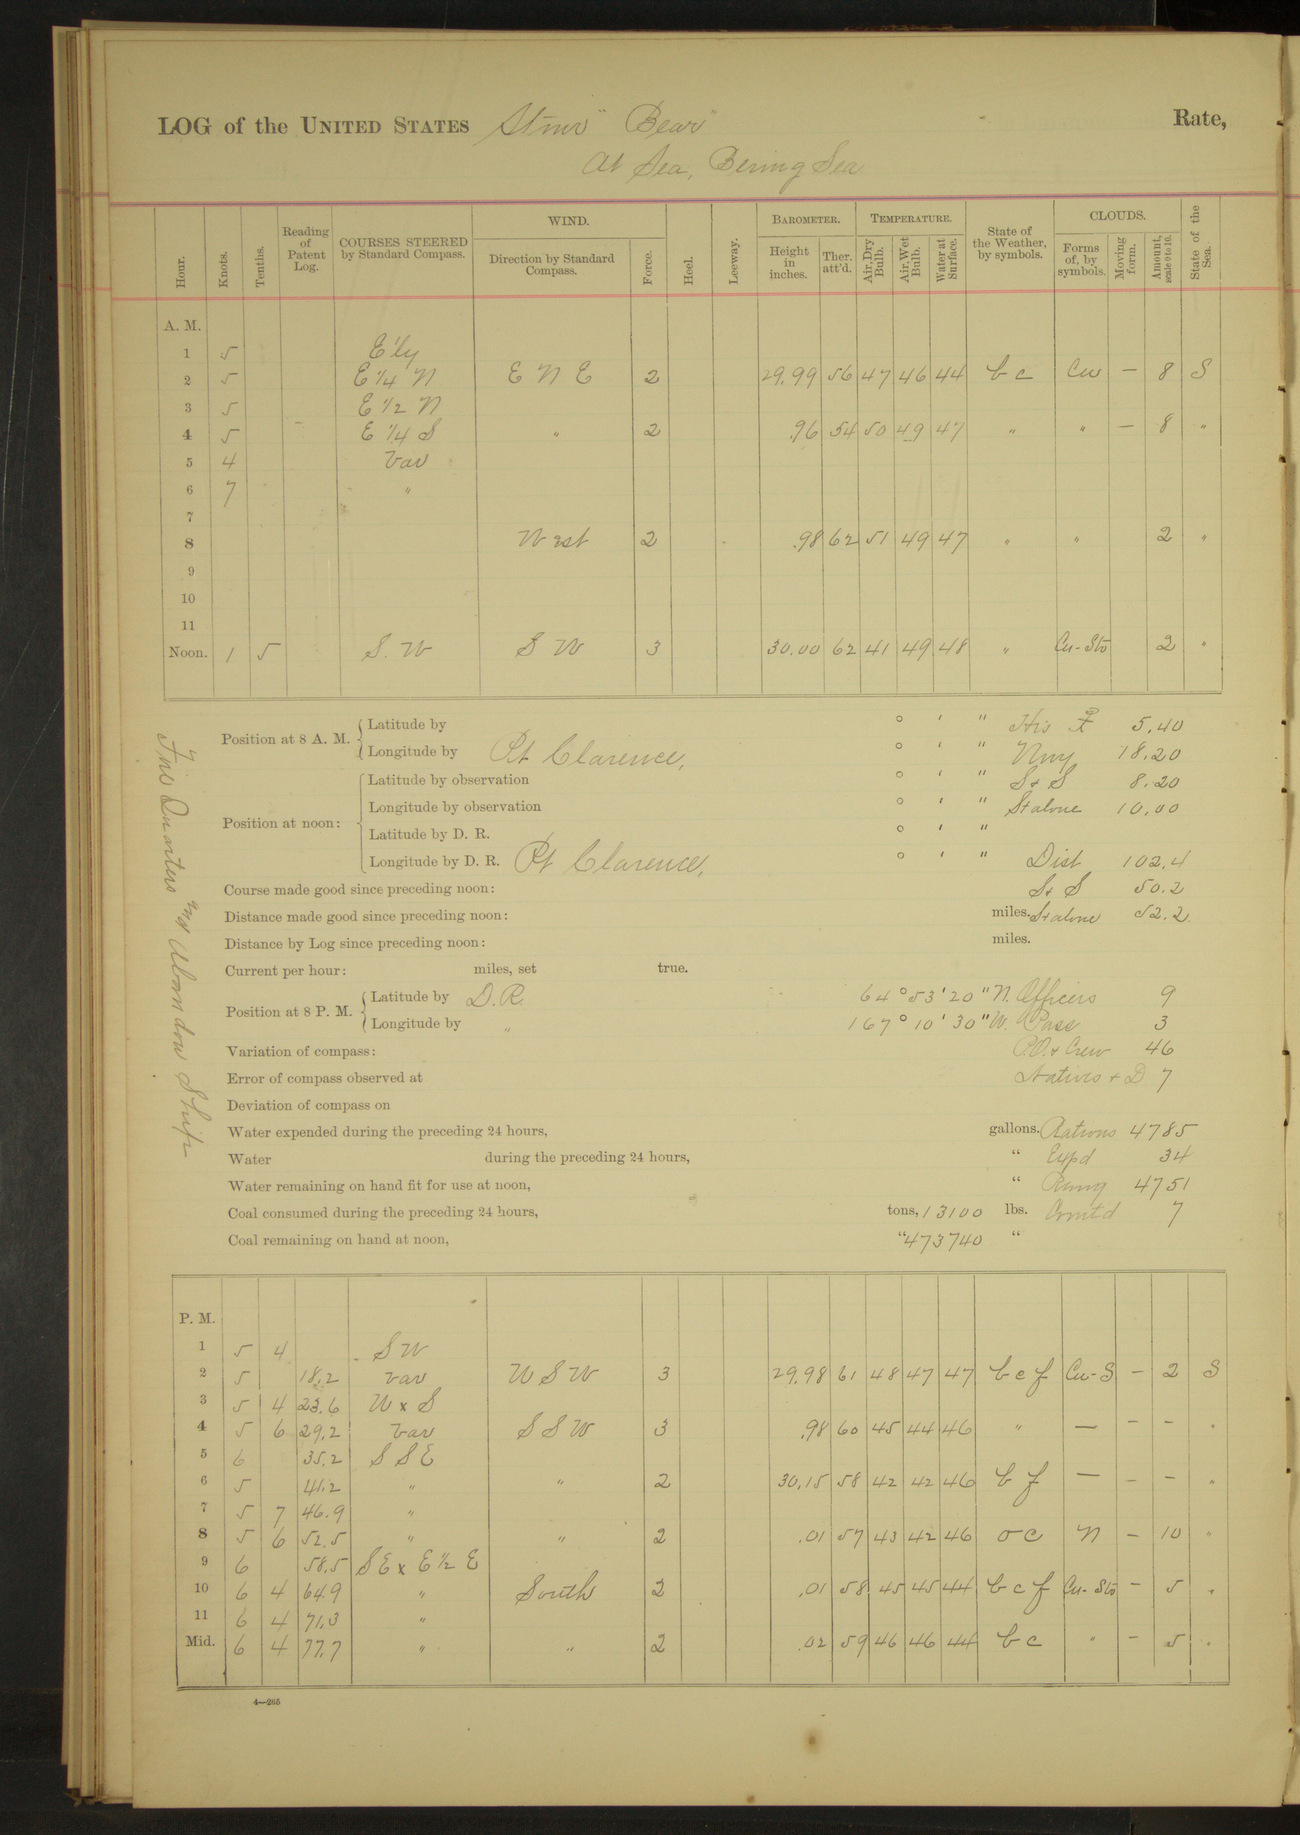 LOG of the UNITED STATES Stmr "Bear" Rate,
At Sea, Bering Sea
Hour. Knots. Tenths. Reading of Patent Log. COURSES STEERED by Standard Compass. WIND. Direction by Standard Compass. Force. Heel. Leeway. BAROMETER. Height in inches. Ther. att'd. TEMPERATURE. Air, Dry Bulb. Air, Wet Bulb. Water at Surface. State of the Weather, by symbols. CLOUDS. Forms of, by symbols. Moving form. Amount, scale 0 to 10. State of the Sea.
A. M.
1 5 E'ly
2 5 E 1/4 N E N E 2 29.99 56 47 46 44 b c Cu — 8 S
3 5 E 1/2 N
4 5 E 1/4 S " 2 .96 54 50 49 47 " " — 8 "
5 4 Var
6 7 "
7
8 West 2 .98 62 51 49 47 " " 2 "
9
10
11
Noon. 1 5 S. W S W 3 30.00 62 41 49 48 " Cu-Sto 2 "
Position at 8 A. M. Latitude by ° ' " His 5.40
Longitude by Pt Clarence, ° ' " Nng 18.20
Position at noon: Latitude by observation ° ' " S + S 8.20
Longitude by observation ° ' " St alone 10.00
Latitude by D. R. ° ' "
Longitude by D. R. Pt Clarence, ° ' " Dist 102.4
Course made good since preceding noon: S + S 50.2
Distance made good since preceding noon: miles. St alone 52.2
Distance by Log since preceding noon: miles.
Current per hour: miles, set true.
Position at 8 P. M. Latitude by D. R. 64° 53' 20" N. Officers 9
Longitude by " 167° 10' 30" W. Pass 3
Variation of compass: P.O. + Crew 46
Error of compass observed at Natives + D 7
Deviation of compass on
Water expended during the preceding 24 hours, gallons. Rations 4785
Water during the preceding 24 hours, " Expd 34
Water remaining on hand fit for use at noon, " Remg 4751
Coal consumed during the preceding 24 hours, tons, 13100 lbs. Comtd 7
Coal remaining on hand at noon, " 473740 "
Fire Quarters and Abandon Ship
P. M.
1 5 4 S W
2 5 18.2 Var W S W 3 29.98 61 48 47 47 b c f Cu-S — 2 S
3 5 4 23.6 W x S
4 5 6 29.2 Var S S W 3 .98 60 45 44 46 " — — — "
5 6 35.2 S S E
6 5 41.2 " " 2 30.15 58 42 42 46 b f — — — "
7 5 7 46.9 "
8 5 6 52.5 " " 2 .01 57 43 42 46 o c N — 10 "
9 6 58.5 S E x E 1/2 E
10 6 4 64.9 " South 2 .01 58 45 45 44 b c f Cu-Sto — 5 "
11 6 4 71.3 "
Mid. 6 4 77.7 " " 2 .02 59 46 46 44 b c " — 5 "
4—265